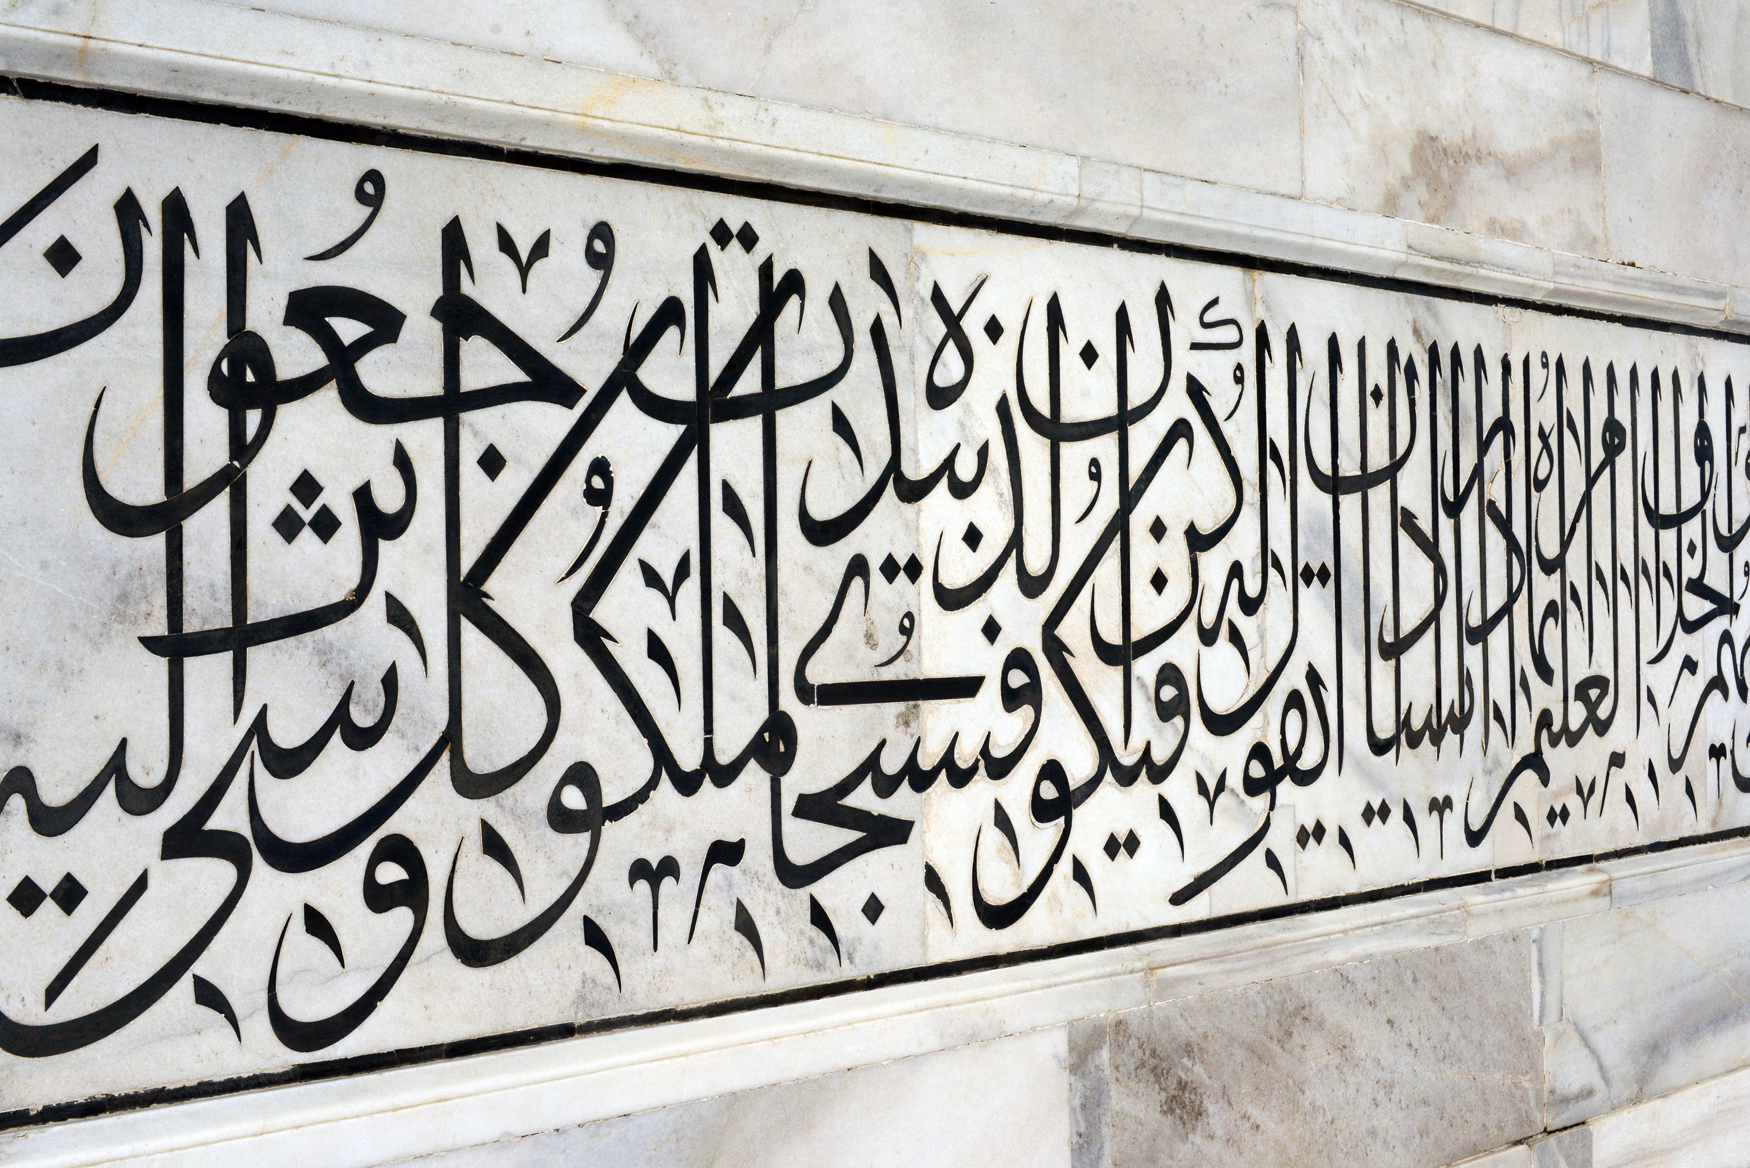 الخلاق العليم انما امره اذا اراد شيئا ان يقول له كن فيكون فسبحان الذي بيده ملكوت كل شيء واليه ترجعون